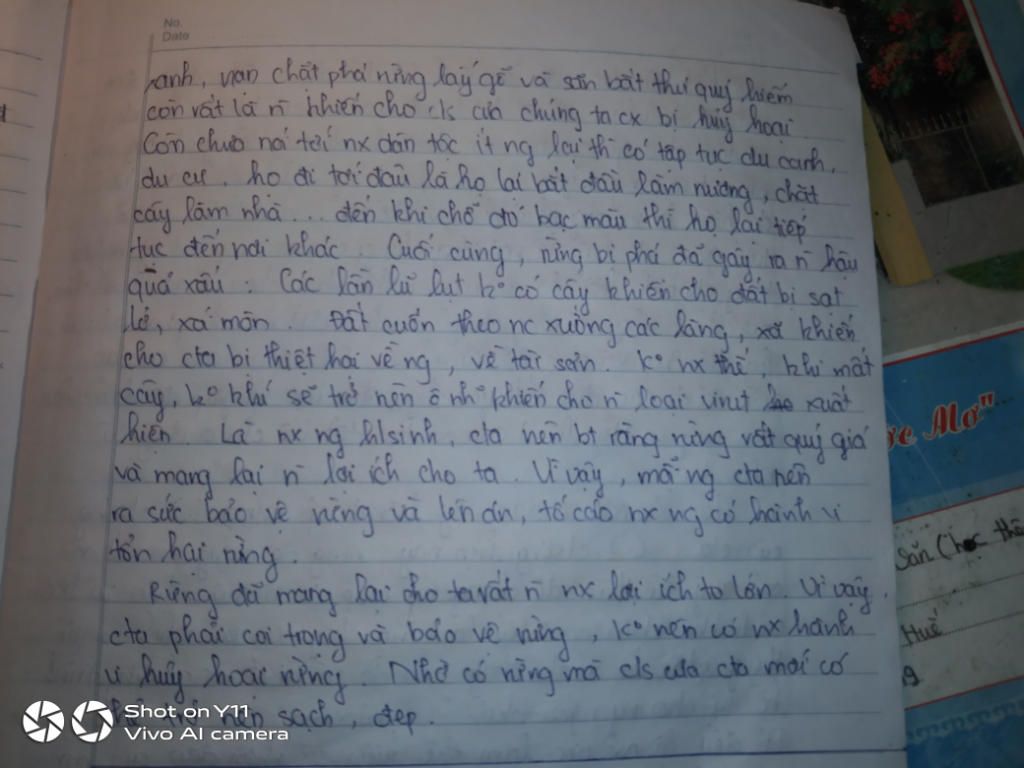 No.
Date
ranh, nạn chặt phá rừng lấy gỗ và săn bắt thú quý hiếm
còn vất là n nhiên cho c/s của chúng ta cx bị huỷ hoại
Còn chưa nói tới nx dân tộc ít ng lại thì có tập tục du canh,
du cư. họ đi tới đâu là họ lại bắt đầu làm nương, chặt
cây làm nhà... đến khi chỗ đó bạc màu thì họ lại tiếp
tục đến nơi khác. Cuối cùng, rừng bị phá đã gây ra n hậu
quả xấu: Các lần lũ lụt kº có cây khiến cho đất bị sạt
lở, xá mòn. Đất cuốn theo nc xuống các làng, xã khiến
cho cta bị thiệt hại về ng, về tài sản. Kº nx thế, khi mất
cây, kº khí sẽ trở nên ô nh khiến cho n loại virut xuất
hiện. Là nx ng h/sinh, cta nên bt rằng rừng vất quý giá
và mang lại n lợi ích cho ta. Vì vậy, mỗi ng cta nên
ra sức bảo vệ rừng và lên án, tố cáo nx ng có hành vi
tổn hại rừng.
Rừng đã mang lại cho ta vất n nx lợi ích to lớn. Vì vậy,
cta phải coi trọng và bảo vệ rừng, kº nên có nx hành
vi hủy hoại rừng. Nhờ có rừng mà c/s của cta mới có
nên sạch, đẹp.
Shot on Y11
Vivo AI camera
ớc Mơ"
Sản (học thô
Huế
9